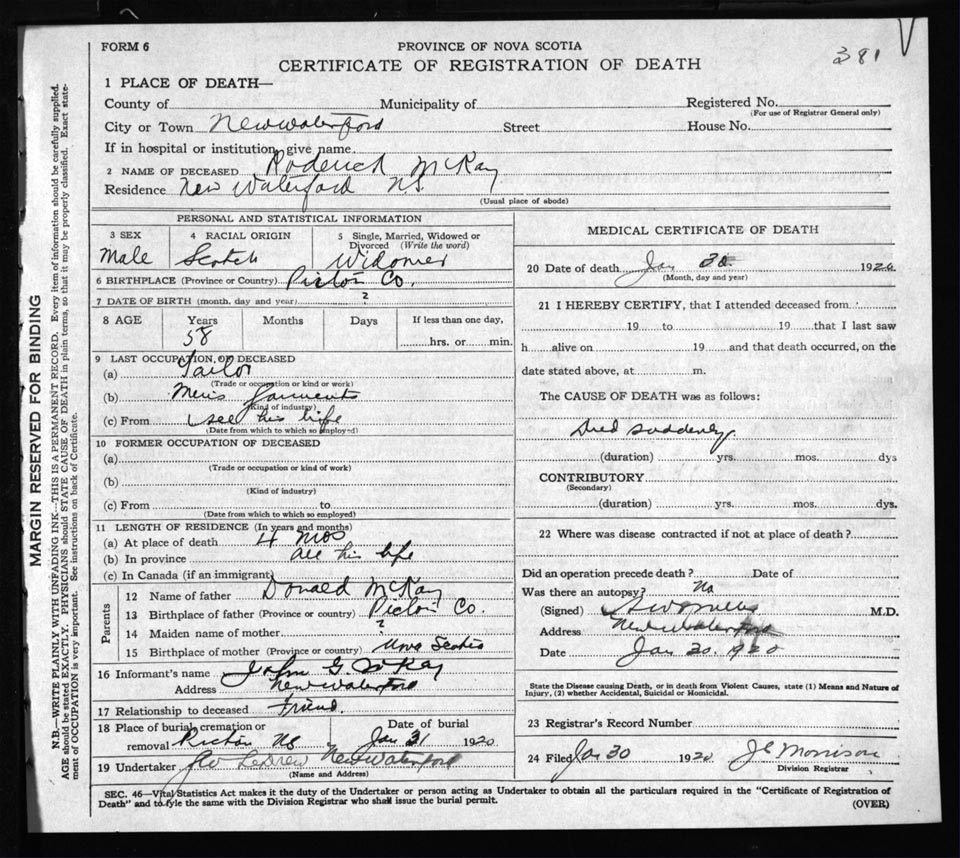 FORM 6
PROVINCE OF NOVA SCOTIA
381
CERTIFICATE OF REGISTRATION OF DEATH
1 PLACE OF DEATH—
County of Municipality of Registered No.
(For use of Registrar General only)
City or Town New Waterford Street House No.
If in hospital or institution, give name
2 NAME OF DECEASED Roderick McKay
Residence New Waterford N.S.
(Usual place of abode)
PERSONAL AND STATISTICAL INFORMATION
3 SEX 4 RACIAL ORIGIN 5 Single, Married, Widowed or Divorced (Write the word)
Male Scotch Widower
6 BIRTHPLACE (Province or Country) Pictou Co.
7 DATE OF BIRTH (month, day and year) ?
8 AGE Years Months Days If less than one day,
58 hrs. or min.
9 LAST OCCUPATION OF DECEASED
(a) Tailor
(Trade or occupation or kind or work)
(b) Mens Garments
(Kind of industry)
(c) From all his life
(Date from which to which so employed)
10 FORMER OCCUPATION OF DECEASED
(a)
(Trade or occupation or kind of work)
(b)
(Kind of industry)
(c) From to
(Date from which to which so employed)
11 LENGTH OF RESIDENCE (In years and months)
(a) At place of death 4 mos
(b) In province all his life
(c) In Canada (if an immigrant)
Parents
12 Name of father Donald McKay
13 Birthplace of father (Province or country) Pictou Co.
14 Maiden name of mother ?
15 Birthplace of mother (Province or country) Nova Scotia
16 Informant's name John G. McKay
Address New Waterford
17 Relationship to deceased Friend.
18 Place of burial, cremation or removal Pictou NS Date of burial Jan 31 1920
19 Undertaker LeDrew New Waterford
(Name and Address)
MEDICAL CERTIFICATE OF DEATH
20 Date of death Jan 30 1920
(Month, day and year)
21 I HEREBY CERTIFY, that I attended deceased from
19 to 19 that I last saw
h alive on 19 and that death occurred, on the
date stated above, at m.
The CAUSE OF DEATH was as follows:
Died suddenly.
(duration) yrs. mos. dys
CONTRIBUTORY
(Secondary)
(duration) yrs. mos. dys.
22 Where was disease contracted if not at place of death?
Did an operation precede death? Date of
Was there an autopsy? No
(Signed) M.D.
Address New Waterford
Date Jan 30. 1920
State the Disease causing Death, or in death from Violent Causes, state (1) Means and Nature of
Injury, (2) whether Accidental, Suicidal or Homicidal.
23 Registrar's Record Number
24 Filed Jan 30 1920 J C Morrison
Division Registrar
SEC. 46—Vital Statistics Act makes it the duty of the Undertaker or person acting as Undertaker to obtain all the particulars required in the "Certificate of Registration of
Death" and to fyle the same with the Division Registrar who shall issue the burial permit.
(OVER)
MARGIN RESERVED FOR BINDING
N.B.—WRITE PLAINLY WITH UNFADING INK—THIS IS A PERMANENT RECORD. Every item of information should be carefully supplied.
AGE should be stated EXACTLY. PHYSICIANS should STATE CAUSE OF DEATH in plain terms, so that it may be properly classified. Exact state-
ment of OCCUPATION is very important. See instructions on back of Certificate.